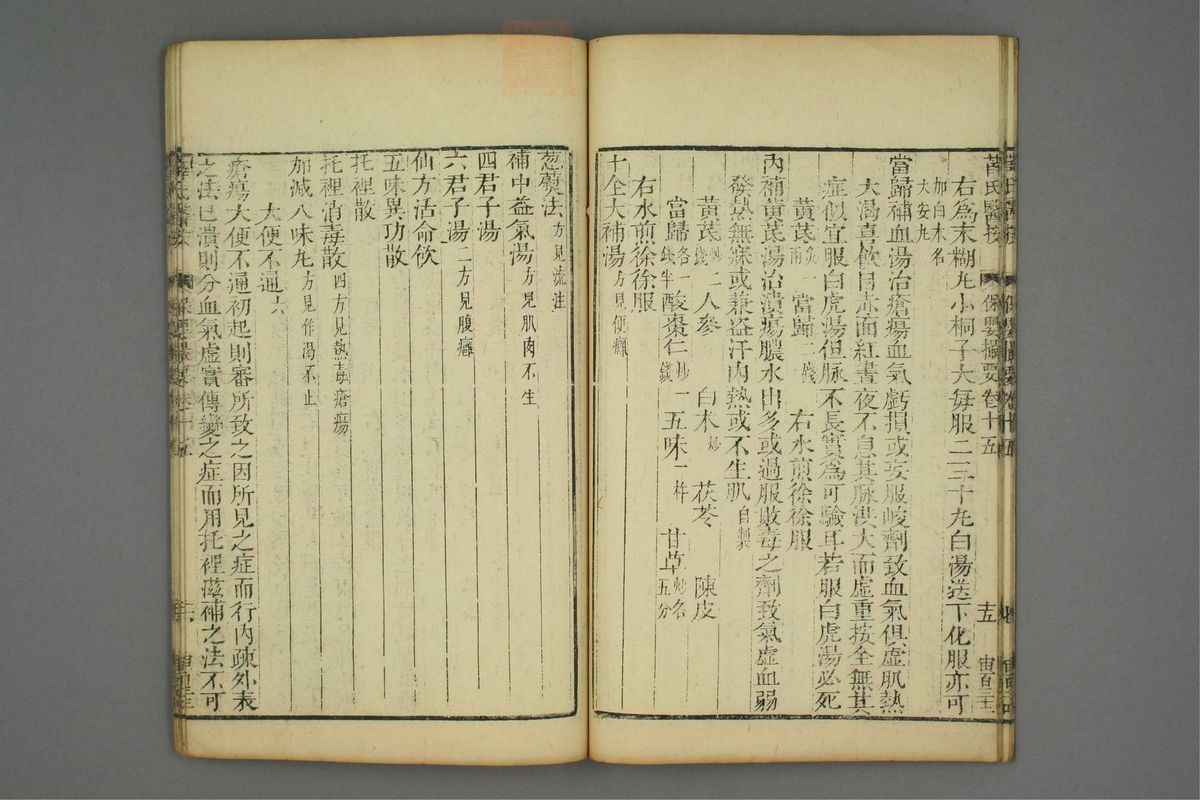 薛氏醫按 保嬰撮要卷十五 十五
右爲末糊丸小桐子大每服二三十丸白湯送下化服亦可
加白木名
大安丸
當歸補血湯治瘡瘍血氣虧損或妄服峻劑致血氣俱虛肌熱
大渴喜飲目赤面紅晝夜不息其脉洪大而虛重按全無其
症似宜服白虎湯但脉不長實爲可驗耳若服白虎湯必死
黃芪炙一兩 當歸二錢 右水煎徐徐服
內補黃芪湯治潰瘍膿水出多或過服敗毒之劑致氣虛血弱
發熱無寐或兼盜汗內熱或不生肌自製
黃芪炒二錢 人參 白木炒 茯苓 陳皮
當歸各一錢半 酸棗仁炒一錢 五味一杵 甘草炒各五分
右水煎徐徐服
十全大補湯方見便癰
葱熨法方見流注
補中益氣湯方見肌肉不生
四君子湯
六君子湯二方見腹癰
仙方活命飲
五味異功散
托裡散
托裡消毒散四方見熱毒瘡瘍
加減八味丸方見作渴不止
大便不通六
瘡瘍大便不通初起則審所致之因所見之症而行內疎外表
之法已潰則分血氣虛實傳變之症而用托裡滋補之法不可